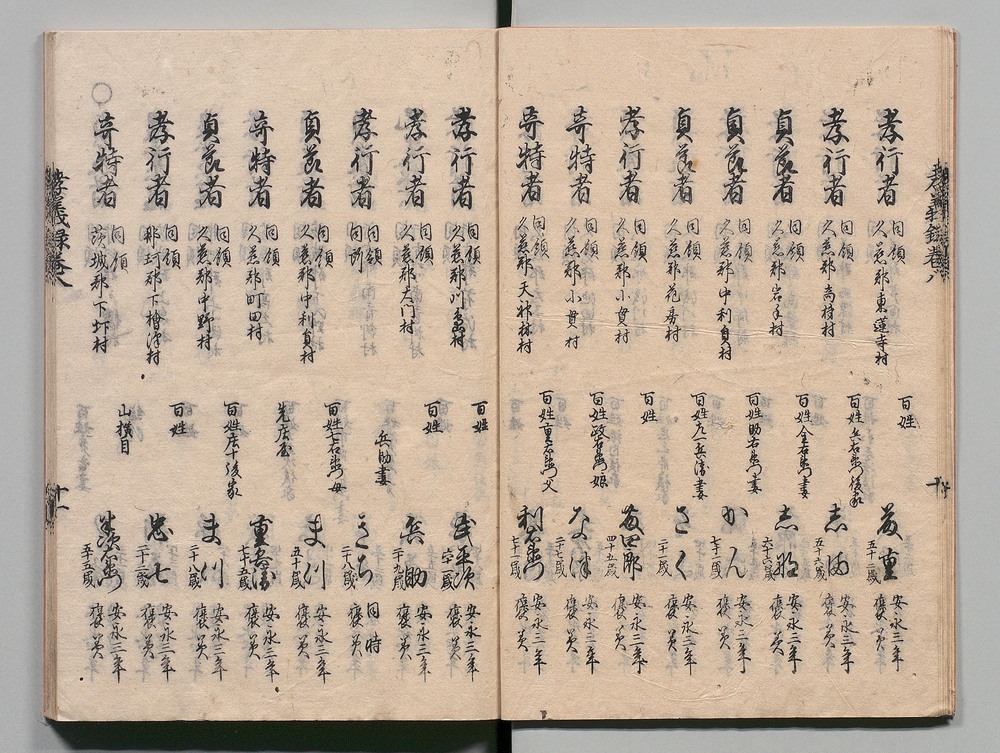 孝義録巻八
孝行者 同領 久慈郡東蓮寺村 百姓 藤重 五十二歳 安永三年 褒美
孝行者 同領 久慈郡高柿村 百姓兵右衛門後家 志め 五十六歳 安永三年 褒美
貞節者 同領 久慈郡岩手村 百姓金右衛門妻 志那 六十六歳 安永三年 褒美
貞節者 同領 久慈郡中利員村 百姓助右衛門妻 かん 七十二歳 安永三年 褒美
貞節者 同領 久慈郡花房村 百姓九一兵衛妻 さく 二十一歳 安永三年 褒美
孝行者 同領 久慈郡小貫村 百姓 四十五歳 安永三年 褒美
奇特者 同領 久慈郡小貫村 百姓政右衛門娘 なつ 二十七歳 安永三年 褒美
奇特者 同領 久慈郡天神林村 百姓重右衛門父 利右衛門 七十二歳 安永三年 褒美
孝行者 同領 久慈郡川島村 百姓 武平次 六十二歳 安永三年 褒美
孝行者 同領 久慈郡大門村 百姓 兵助 二十九歳 安永三年 褒美
孝行者 同領 同所 兵助妻 さち 二十八歳 同時 褒美
貞節者 同領 久慈郡中利員村 百姓七右衛門母 ま川 五十歳 安永三年 褒美
奇特者 同領 久慈郡町田村 先庄屋 重兵衛 七十五歳 安永三年 褒美
貞節者 同領 久慈郡中野村 百姓庄十後家 ま川 二十八歳 安永三年 褒美
孝行者 同領 那珂郡下檜沢村 百姓 忠七 二十二歳 安永三年 褒美
○奇特者 同領 茨城郡下圷村 山横目 五十五歳 安永三年 褒美
孝義録巻八 十一